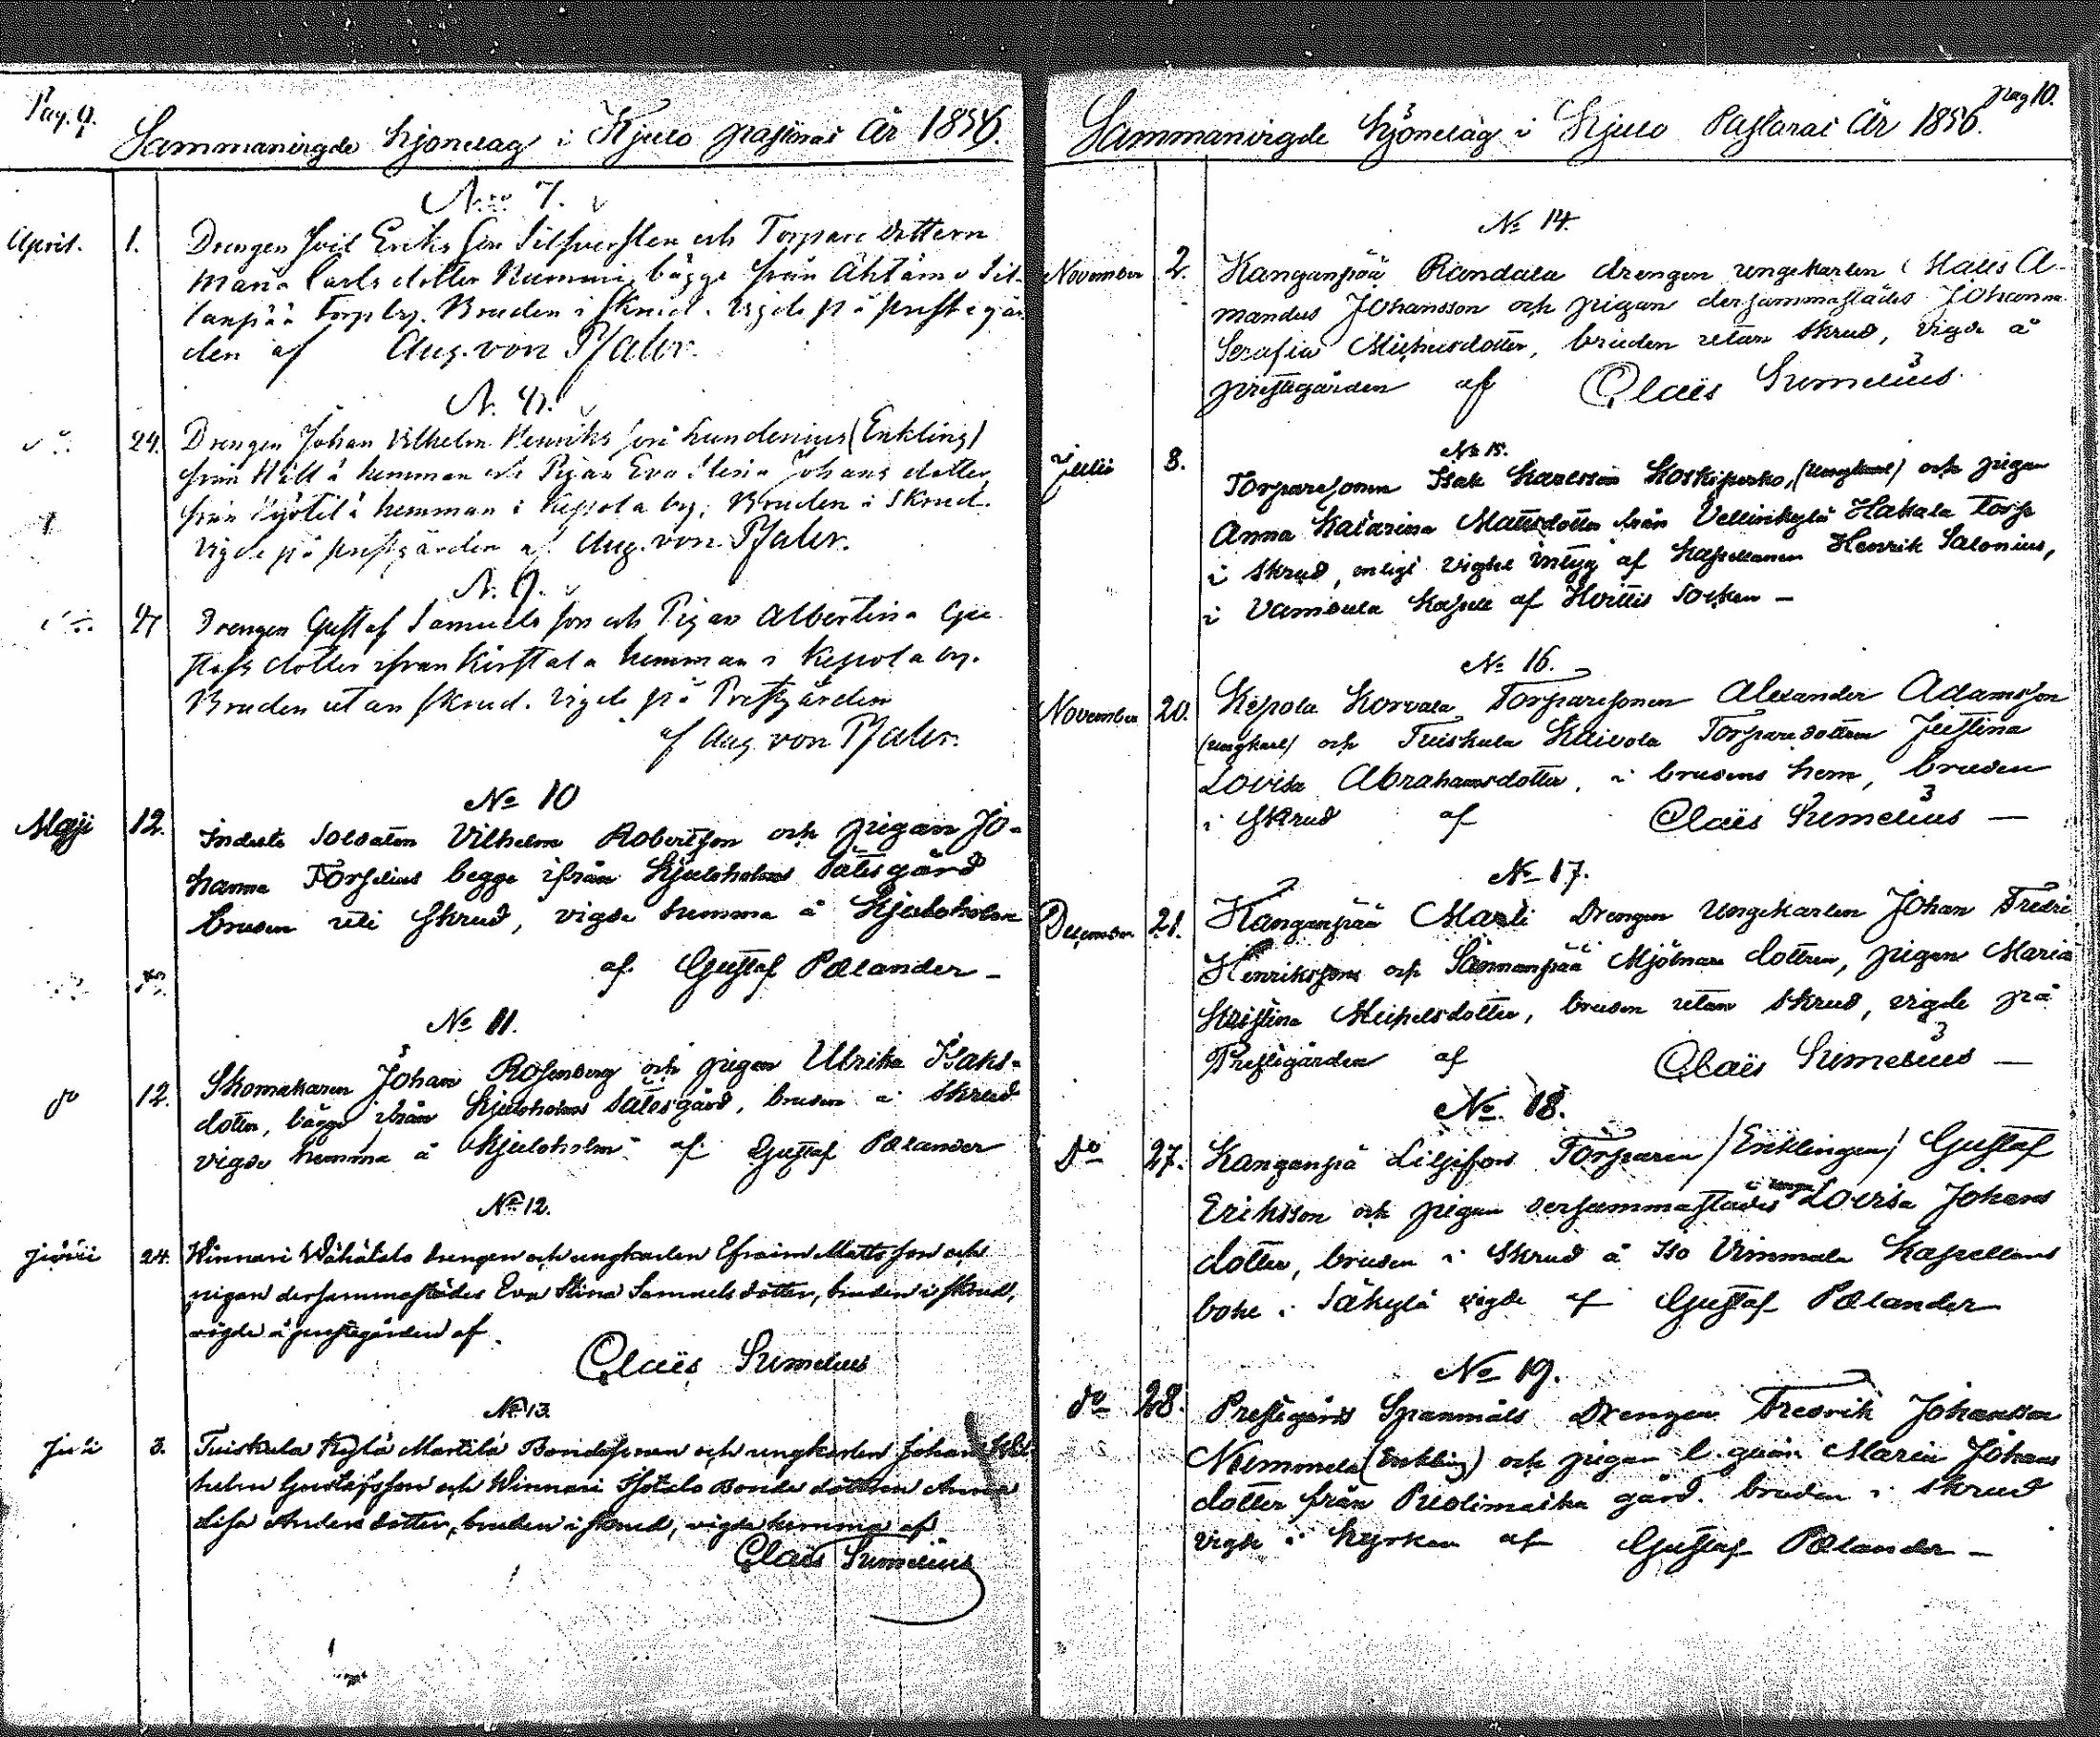 Pag. 9.
Sammanvigde hjonelag i Kjulo pastorat År 1856.
No 7.
April. 1. Drengen Joil Eriks son Silfversten och Torpare dottern
Maria Carls dotter Nummi, bägge från Ahtämo Sil-
lanpää Torp by. Bruden i skrud. Vigde på prestegår
den af Aug. von Pfaler.
N. 8.
24. Drengen Johan Vilhelm Henriks son Lundenius (Enkling)
från hemman och Pigan Eva Stina Johans dotter
från hemman i Kepola by, Bruden i Skrud.
Vigde på prestgården af Aug. von Pfaler.
N. 9.
27 Drengen Gustaf Samuels son och Pigan Albertina Gu
stafs dotter ifran Kirstala hemman i Kepola by.
Bruden utan skrud. Vigde på Prestgården
af Aug. von Pfaler.
No 10
Maji 12. Indelta Soldaten Vilhelm Robertson och pigan Jo-
hanna Torselius begge ifrån Kjuloholms Sätesgård
bruden uti skrud, vigde hemma å Kjuloholm
af Gustaf Pælander –
No 11.
do 12. Skomakaren Johan Rosenberg och pigan Ulrika Isaks-
dotter, bägge ifrån Kjuloholms Sätesgård, bruden i skrud
vigde hemma å Kjuloholm af Gustaf Pælander
No 12.
junii 24. Winnari Wähätalo drengen och ungkarlen Efraim Matts son och
pigan dersammastädes Eva Stina Samuels dotter, bruden i skrud,
vigde å prestegården af.
Claës Sumelius
No 13.
juli 3. Tuiskula Kylä Martila Bondesonen och ungkarlen Johan Wil
helm Gustafsson och Winnari Isotalo Bonde dottren Anna
Lisa Anders dotter, bruden i skrud, vigde hemma af
Claës Sumelius
pag 10.
Sammanvigde hjonelag i Kjulo Pastorat År 1856.
No 14.
November 2. Kanganpää Randala drengen ungekarlen Matts A-
mandus Johansson och pigan dersammastädes Johanna
Serafia Michelsdotter, bruden utan skrud, vigde å
prestegården af Claës Sumelius
No 15.
Julii 8. Torparesonen Isak Karlsson Koskipirko, (ungkarl) och pigan
Anna Katarina Mattsdotter från Vellinkylä Hakala Torp
i skrud, enligt vigsel intyg af Kapellanen Henrik Salonius,
i Vambula Kapell af Hvittis Socken –
No 16.
November 20. Kepola Korvala Torparesonen Alexander Adamsson
(ungkarl) och Tuiskula Kaivola Torparedottren Justina
Lovisa Abrahamsdotter, i brudens hem, bruden
i skrud af Claës Sumelius –
No 17.
December 21. Kanganpää Marti Drengen ungekarlen Johan Fredri
Henriksson och Sannanpää Mjölnare dottren, pigan Maria
Kristina Mickelsdotter, bruden utan skrud, vigde på
Prestegården af Claës Sumelius –
No 18.
do 27. Kanganpä Liljefors Torparen /Enklingen/ Gustaf
Eriksson och pigan dersammastädes Lovisa Johans
dotter, bruden i skrud å Iso Vimmala Kapellans
bohe i Säkylä vigde af Gustaf Pælander
No 19.
do 28. Prestegårds Spanmåls Drengen Fredrik Johansson
Nummela (Enkling) och pigan l. quin Maria Johans
dotter från Puolimatka gård. bruden i skrud
vigde i Kyrkan af Gustaf Pælander –